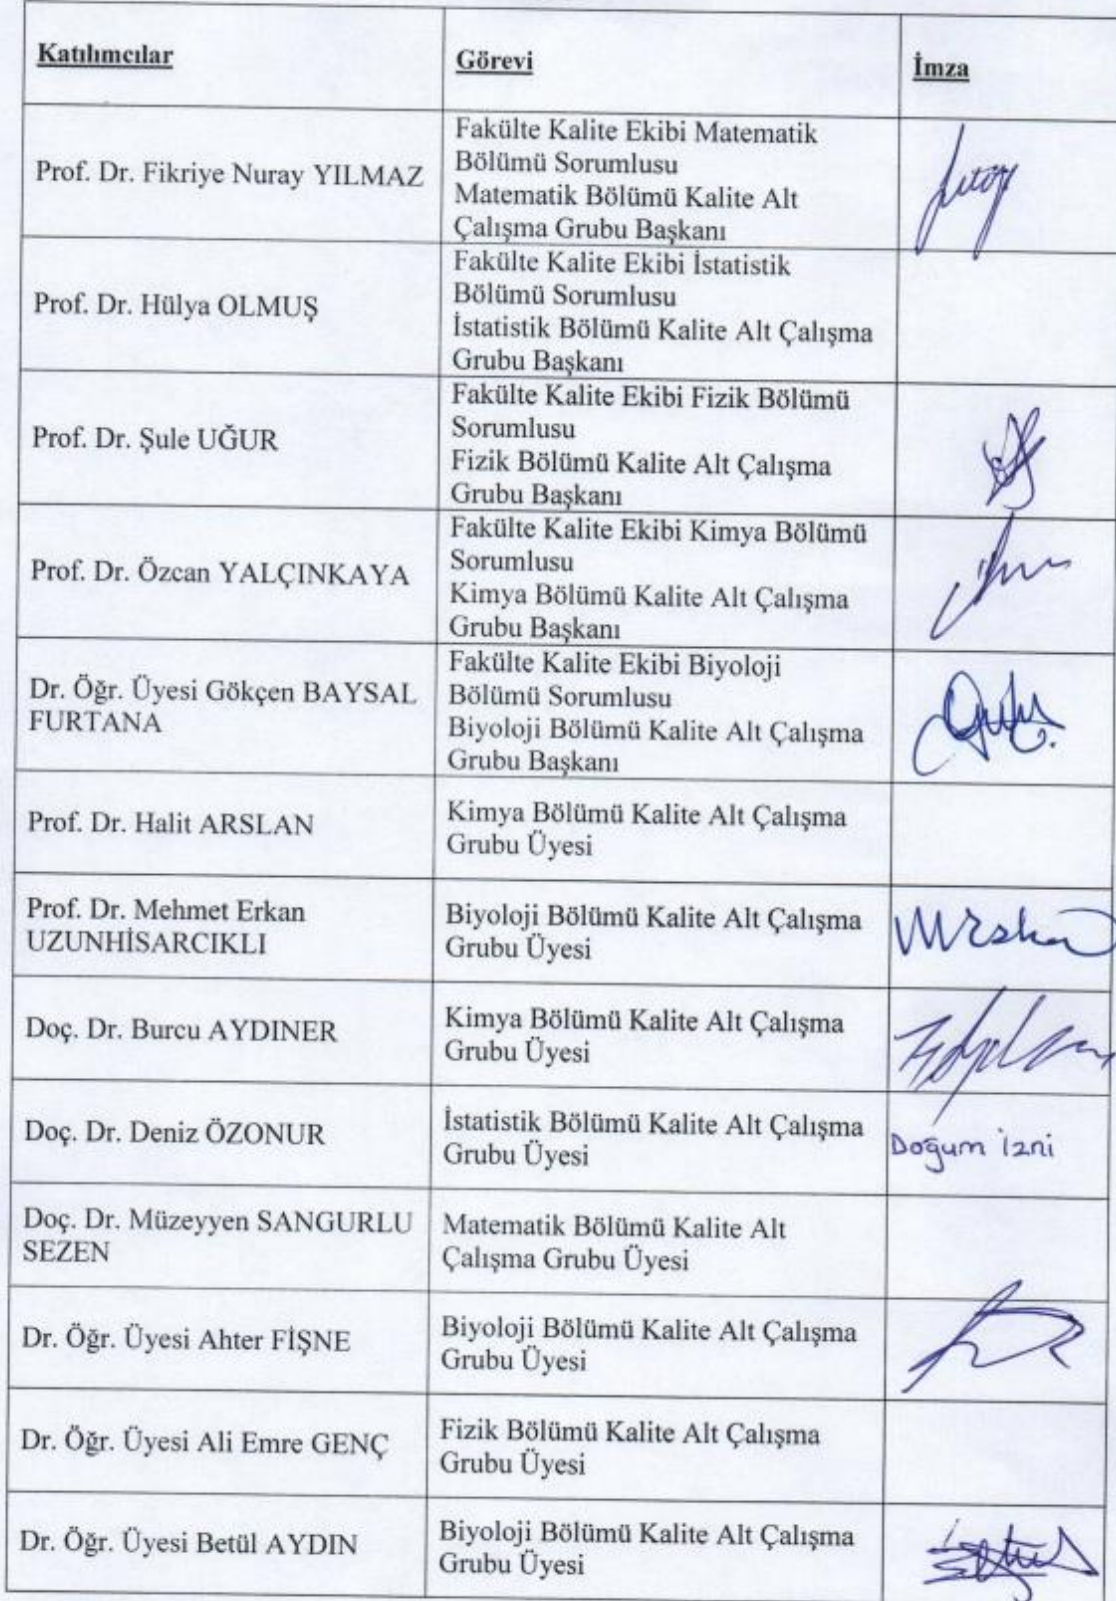 Katılımcılar
Görevi
İmza
Prof. Dr. Fikriye Nuray YILMAZ
Fakülte Kalite Ekibi Matematik
Bölümü Sorumlusu
Matematik Bölümü Kalite Alt
Çalışma Grubu Başkanı
Prof. Dr. Hülya OLMUŞ
Fakülte Kalite Ekibi İstatistik
Bölümü Sorumlusu
İstatistik Bölümü Kalite Alt Çalışma
Grubu Başkanı
Prof. Dr. Şule UĞUR
Fakülte Kalite Ekibi Fizik Bölümü
Sorumlusu
Fizik Bölümü Kalite Alt Çalışma
Grubu Başkanı
Prof. Dr. Özcan YALÇINKAYA
Fakülte Kalite Ekibi Kimya Bölümü
Sorumlusu
Kimya Bölümü Kalite Alt Çalışma
Grubu Başkanı
Dr. Öğr. Üyesi Gökçen BAYSAL
FURTANA
Fakülte Kalite Ekibi Biyoloji
Bölümü Sorumlusu
Biyoloji Bölümü Kalite Alt Çalışma
Grubu Başkanı
Prof. Dr. Halit ARSLAN
Kimya Bölümü Kalite Alt Çalışma
Grubu Üyesi
Prof. Dr. Mehmet Erkan
UZUNHİSARCIKLI
Biyoloji Bölümü Kalite Alt Çalışma
Grubu Üyesi
Doç. Dr. Burcu AYDINER
Kimya Bölümü Kalite Alt Çalışma
Grubu Üyesi
Doç. Dr. Deniz ÖZONUR
İstatistik Bölümü Kalite Alt Çalışma
Grubu Üyesi
Doğum izni
Doç. Dr. Müzeyyen SANGURLU
SEZEN
Matematik Bölümü Kalite Alt
Çalışma Grubu Üyesi
Dr. Öğr. Üyesi Ahter FİŞNE
Biyoloji Bölümü Kalite Alt Çalışma
Grubu Üyesi
Dr. Öğr. Üyesi Ali Emre GENÇ
Fizik Bölümü Kalite Alt Çalışma
Grubu Üyesi
Dr. Öğr. Üyesi Betül AYDIN
Biyoloji Bölümü Kalite Alt Çalışma
Grubu Üyesi